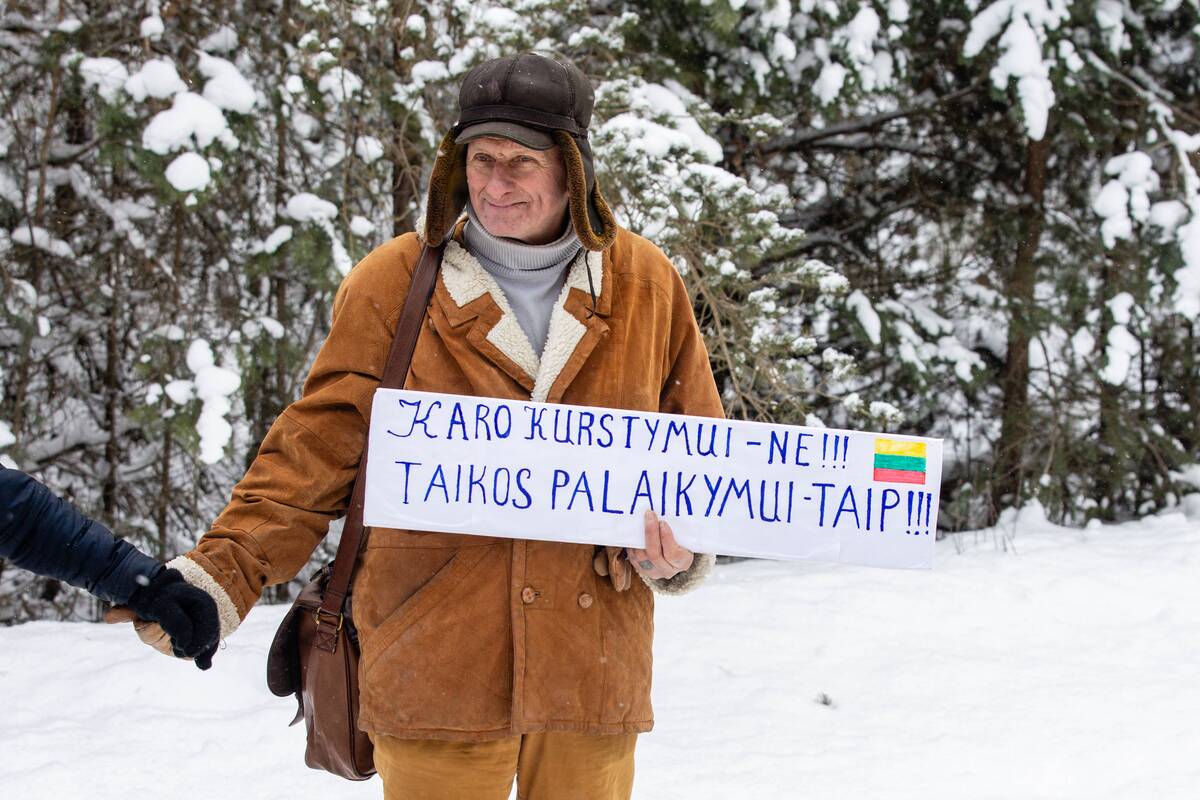 KARO KURSTYMUI - NE!!!
TAIKOS PALAIKYMUI - TAIP!!!